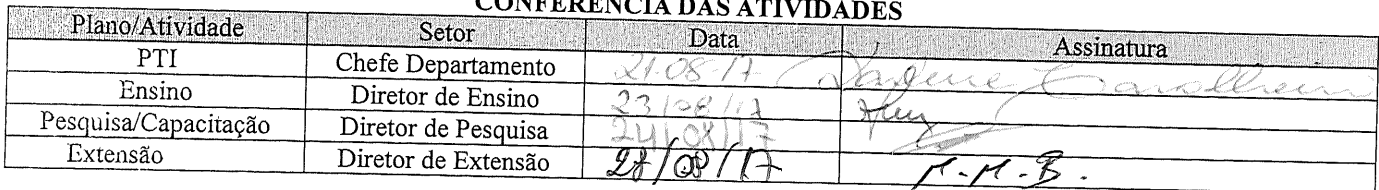 CONFERÊNCIA DAS ATIVIDADES
Plano/Atividade Setor Data Assinatura
PTI Chefe Departamento 21.08.17
Ensino Diretor de Ensino 23/08/17
Pesquisa/Capacitação Diretor de Pesquisa 24/08/17
Extensão Diretor de Extensão 28/08/17 M.M.B.